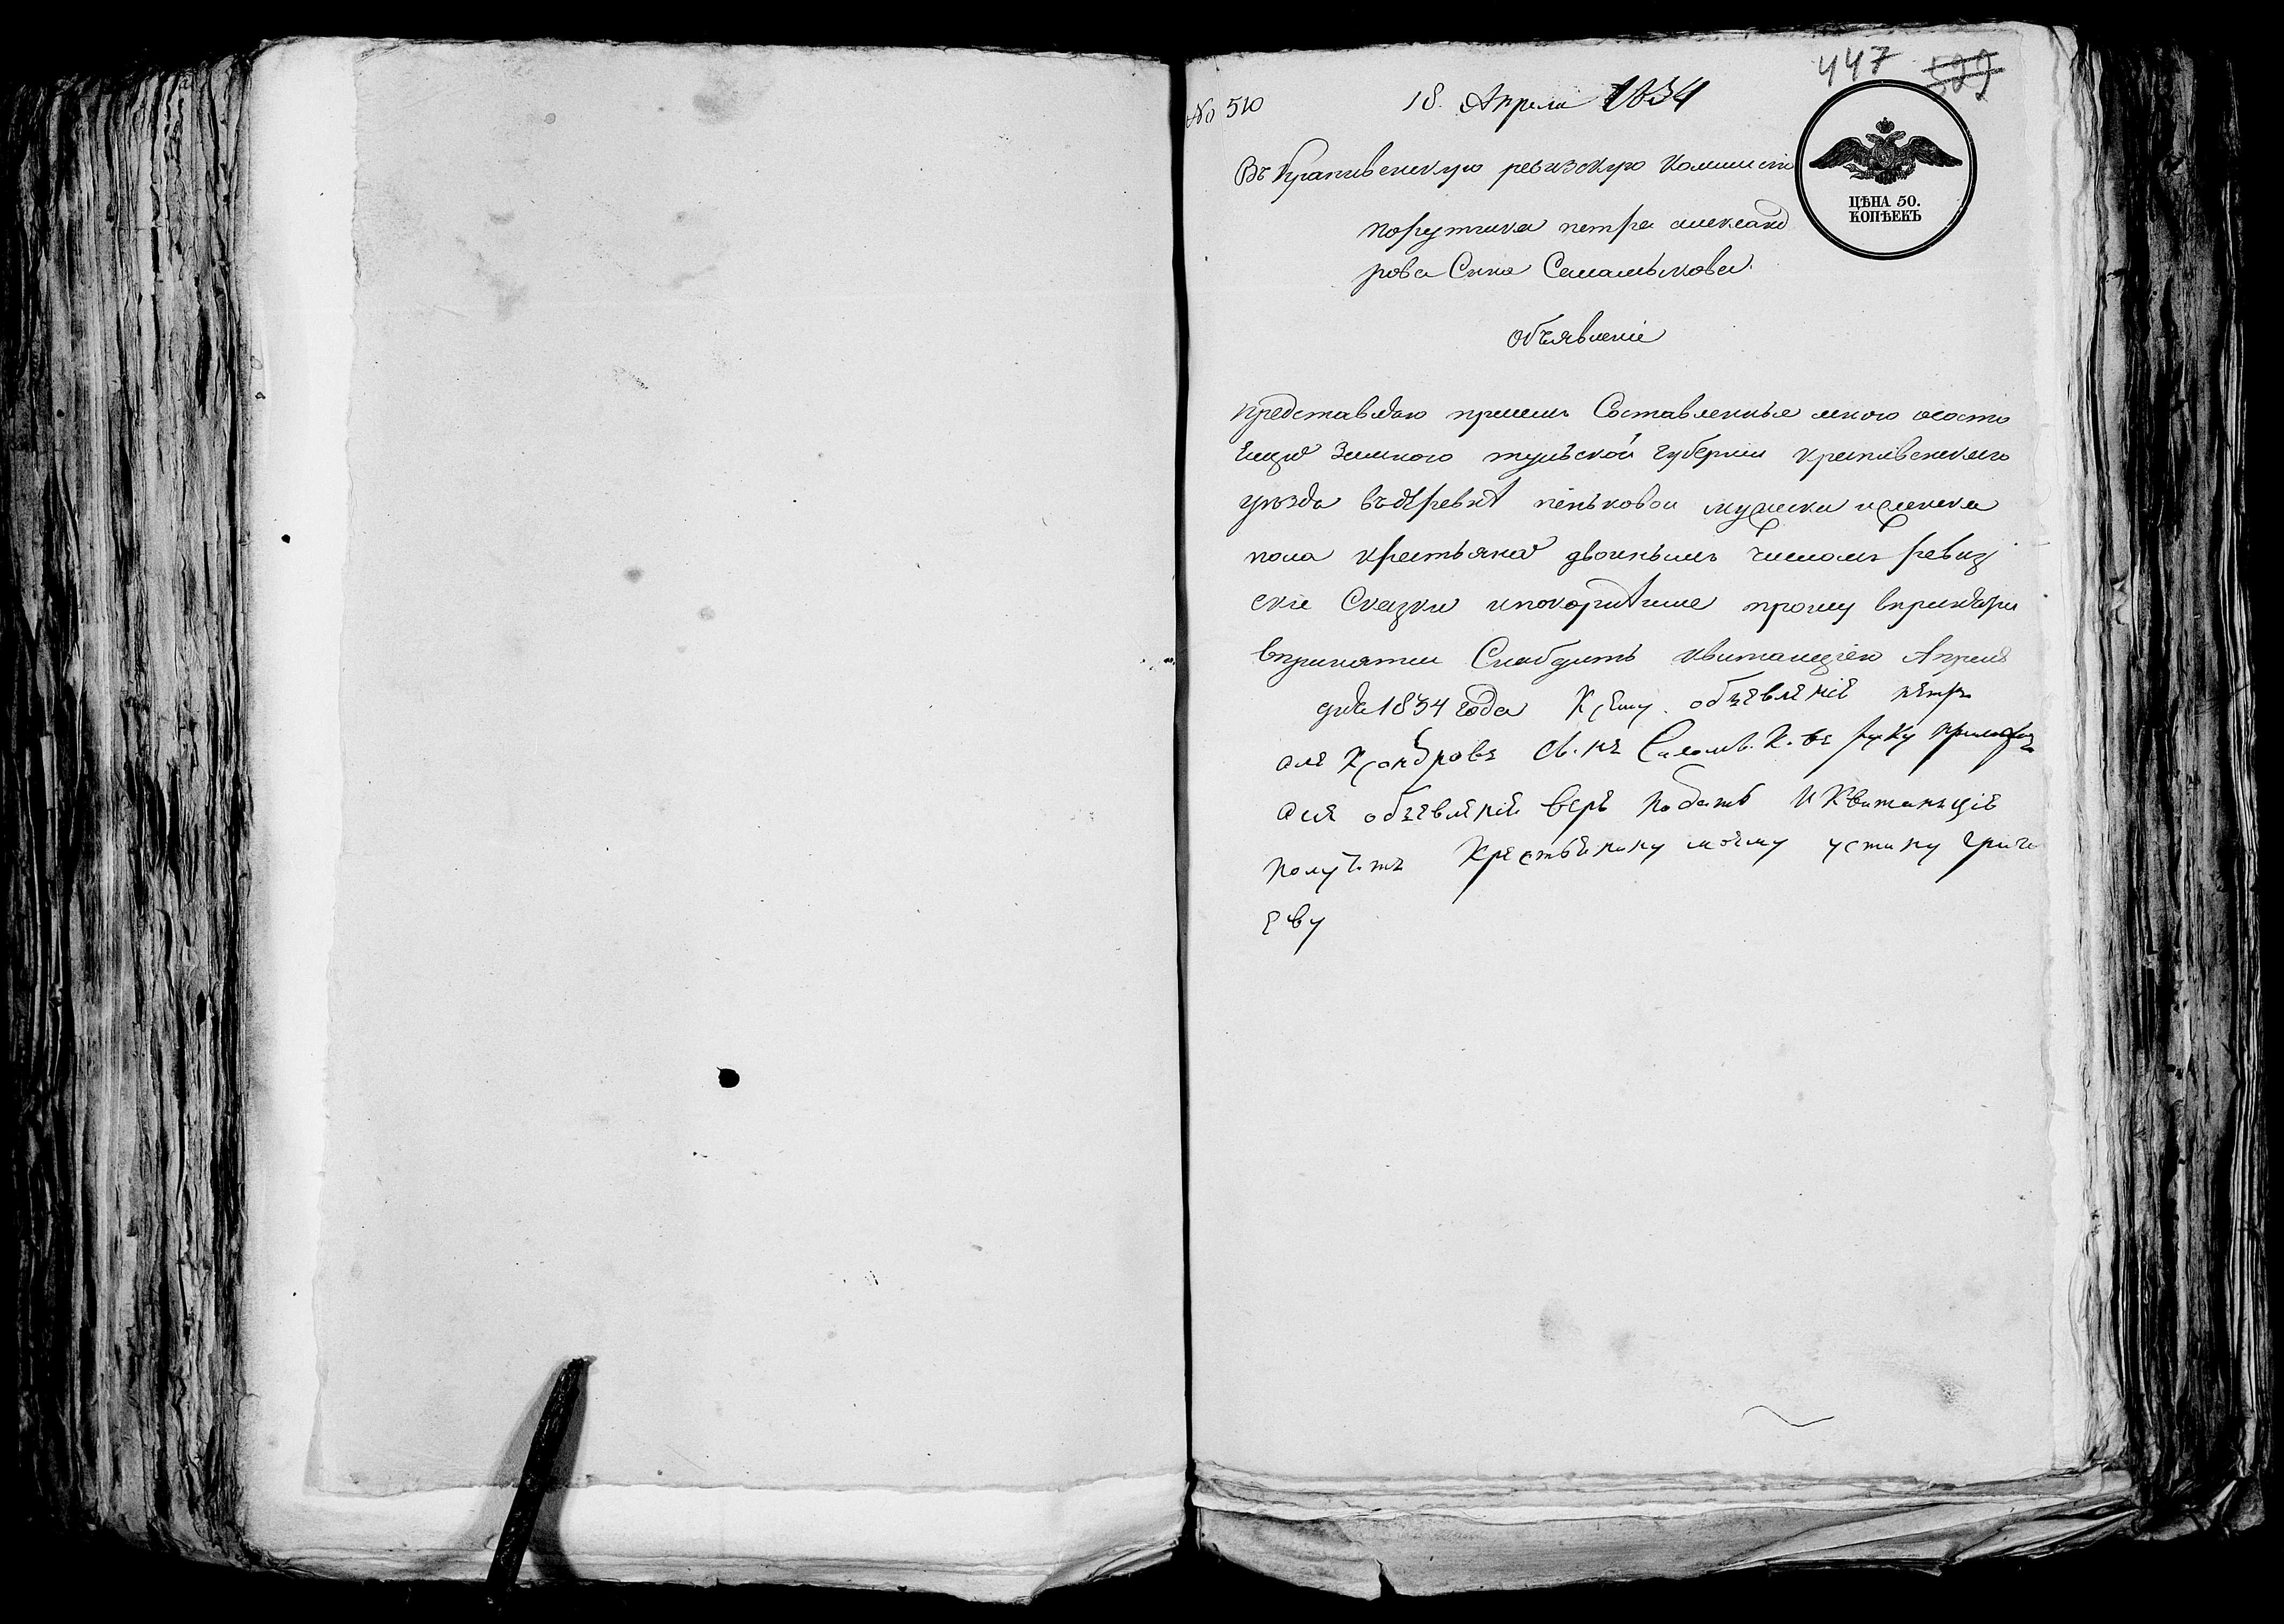 447 529
№ 510 18. Апреля 1834
ЦѢНА 50.
КОПѢЕКЪ
Въ Крапивенскую ревизскую Комисию
порутчика петра александ
рова Сына
объявление
представляю присемъ Составленные мною осостоя
тульской губернии крапивенскаго
уезда въдеревне пеньковой мужеска иженска
пола крестьяна двойнымъ числомъ ревиз
ские Сказки ипокорнейше прошу
впринятии Снабдить квитанциею Апреля
дня 1834 года К сему объевление петръ
але Ксандровъ руку приложилъ
асие объевление верю подать И Квитанъцие
получить Крестьянину моему устину
еву